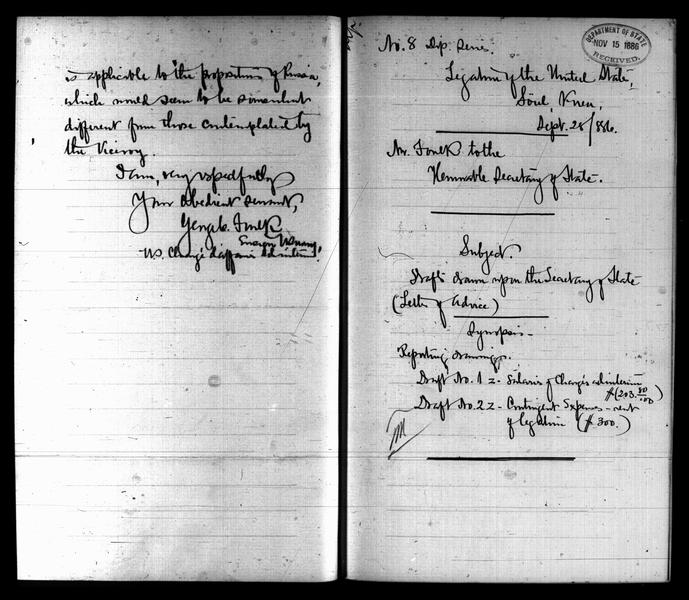 is applicable to the proposition of Russia,
which would seem to be somewhat
different from those contemplated by
the Viceroy.
I am, very respectfully
Your obedient servant,
George C. Foulk
Ensign U.S. Navy,
U.S. Chargé d'affaires ad interim.
No. 8 Dip. Series.
DEPARTMENT OF STATE
NOV 15 1886
RECEIVED.
Legation of the United States,
Söul, Korea,
Sept. 28/886.
Mr. Foulk to the
Honorable Secretary of State.
Subject.
Drafts drawn upon the Secretary of State
(Letter of Advice)
Synopsis—
Reporting drawings.
Draft No. 1 - Salaries of Chargés ad interim
$(203. 80/100)
Draft No. 2 - Contingent Expenses - rent
of legation ($300.)